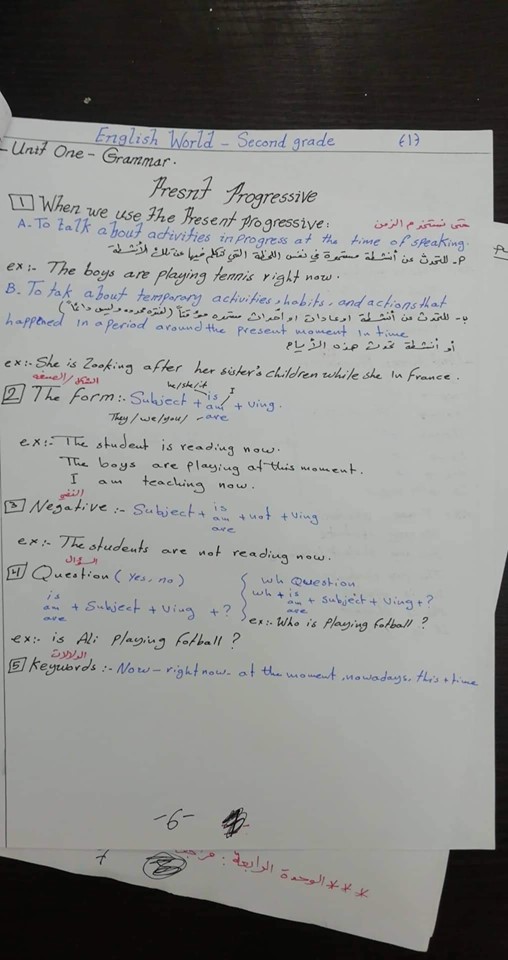 English World - Second grade
- Unit One - Grammar.
Presnt Progressive
1 When we use the Present progressive: متى نستخدم الزمن
A- To talk about activities in progress at the time of speaking.
P- للتحدث عن أنشطة مستمرة في نفس اللحظة التي نتكلم فيها عن تلك الأنشطة
ex:- The boys are playing tennis right now.
B. To tak about temporary activities, habits, and actions that
ب- للتحدث عن أنشطة او عادات او أحداث مستمره مؤقتاً (لفتره محدوده وليس دائماً)
happened in a period around the present moment in time
أو أنشطة تحدث هذه الأيام
ex:- She is looking after her sister's children while she In france.
الشكل / الصيغه he/she/it I
2 The form:- Subject + is / am + Ving.
They / we / you / - are
ex:- The student is reading now.
The boys are playing at this moment.
I am teaching now.
النفي
3 Negative :- Subject + is am are + not + Ving
ex:- The students are not reading now.
السؤال
4 Question (Yes, no)
is am are + Subject + Ving + ?
ex:- is Ali playing fotball ?
wh Question
wh + is am are + subject + Ving + ?
ex:- Who is Playing fotball ?
الدلالات
5 Keywords :- Now - right now - at the moment, nowadays, this + time
-6-
*** الوحدة الرابعة :